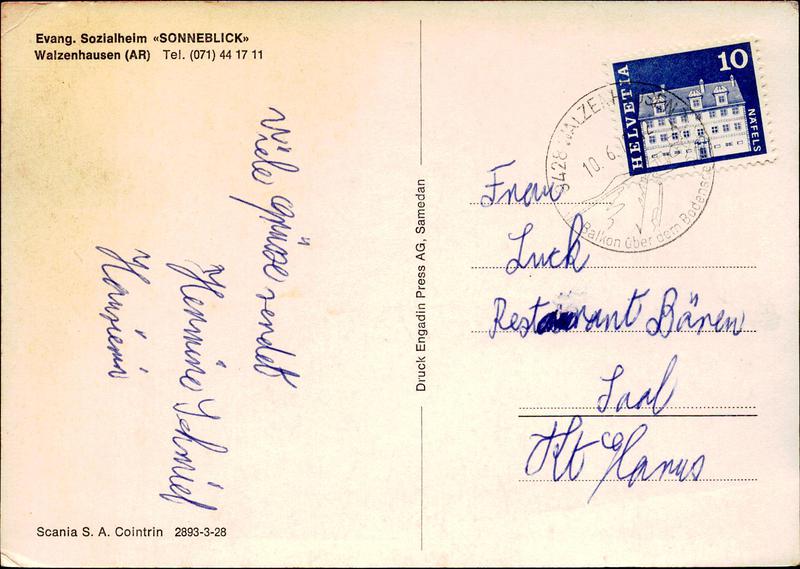 Evang. Sozialheim «SONNEBLICK»
Walzenhausen (AR) Tel. (071) 44 17 11
Viele Grüsse sendet
Hermine Schmid
Scania S. A. Cointrin 2893-3-28
Druck Engadin Press AG, Samedan
HELVETIA
10
NÄFELS
9428 WALZENHAUSEN
10. 6.
Balkon über dem Bodensee
Frau
Luck
Restaurant Bären
Saal
Kt Glarus